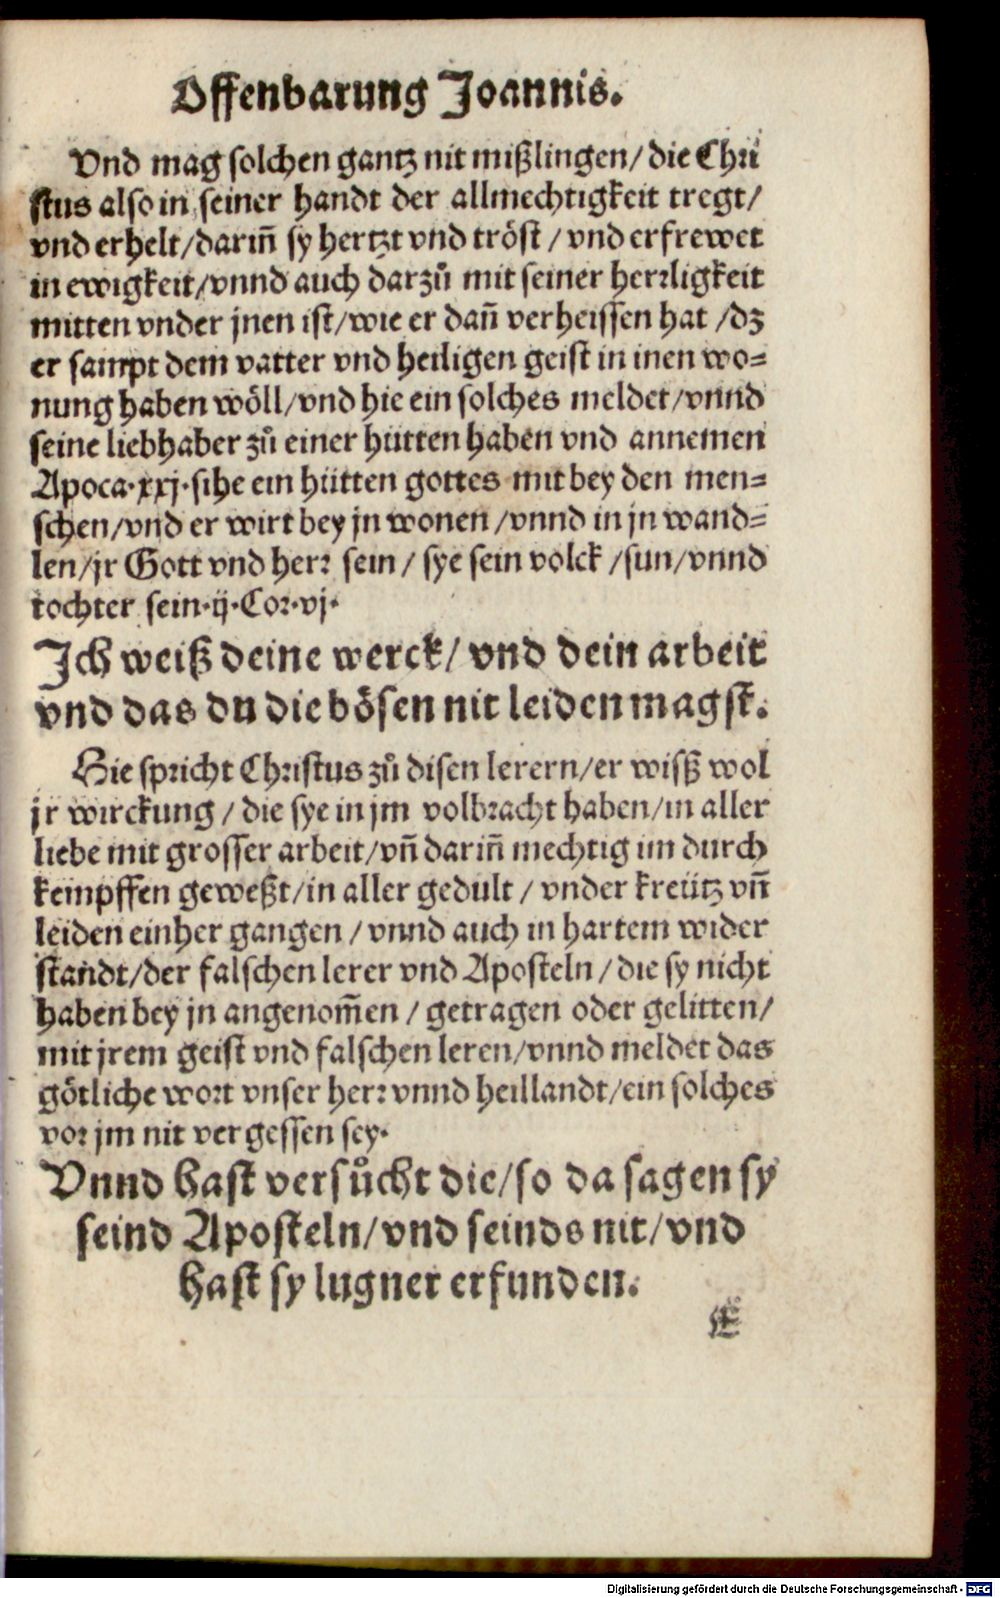 Offenbarung Joannis.
Vnd mag solchen gantz nit mißlingen/ die Chri
stus also in seiner handt der allmechtigkeit tregt/
vnd erhelt/darin̄ sy hertzt vnd tröst / vnd erfrewet
in ewigkeit/vnnd auch darzů mit seiner herrligkeit
mitten vnder jnen ist/wie er dan̄ verheissen hat /dz
er sampt dem vatter vnd heiligen geist in inen wo=
nung haben wöll/vnd hie ein solches meldet/vnnd
seine liebhaber zů einer hütten haben vnd annemen
Apoca.xxj.sihe ein hütten gottes mit bey den men=
schen/vnd er wirt bey jn wonen /vnnd in jn wand=
len/jr Gott vnd herr sein / sye sein volck /sun/vnnd
tochter sein.ij.Cor.vj.
Ich weiß deine werck/ vnd dein arbeit
vnd das du die bösen nit leiden magst.
Hie spricht Christus zů disen lerern/er wisß wol
jr wirckung / die sye in jm volbracht haben/in aller
liebe mit grosser arbeit/vn̄ darin̄ mechtig im durch
kempffen geweßt/in aller gedult / vnder kreütz vn̄
leiden einher gangen / vnnd auch in hartem wider
standt/der falschen lerer vnd Aposteln / die sy nicht
haben bey jn angenom̄en / getragen oder gelitten/
mit jrem geist vnd falschen leren/vnnd meldet das
götliche wort vnser herr vnnd heillandt/ein solches
vor jm nit vergessen sey.
Vnnd hast versůcht die/so da sagen sy
seind Aposteln/vnd seinds nit/vnd
hast sy lugner erfunden.
Digitalisierung gefördert durch die Deutsche Forschungsgemeinschaft - DFG